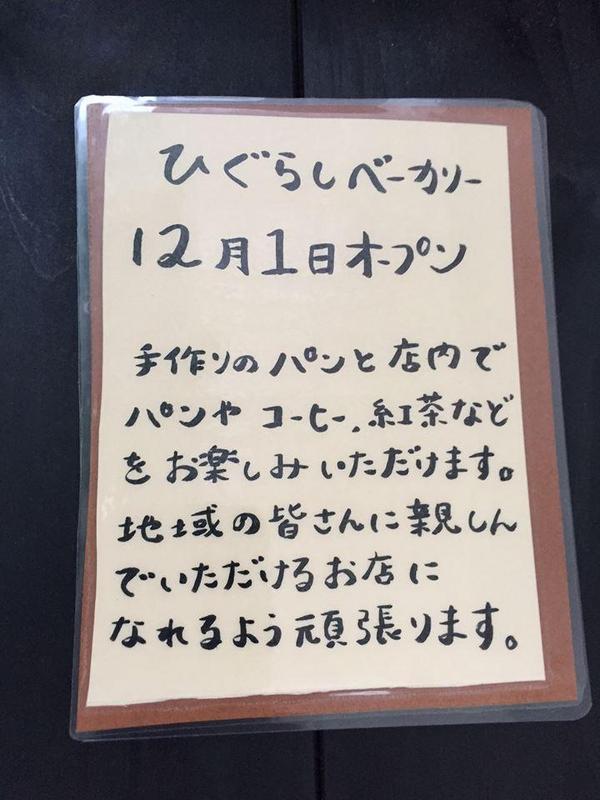 ひぐらしベーカリー
12月1日オープン
手作りのパンと店内で
パンや コーヒー、紅茶など
をお楽しみいただけます。
地域の皆さんに親しん
でいただけるお店に
なれるよう頑張ります。